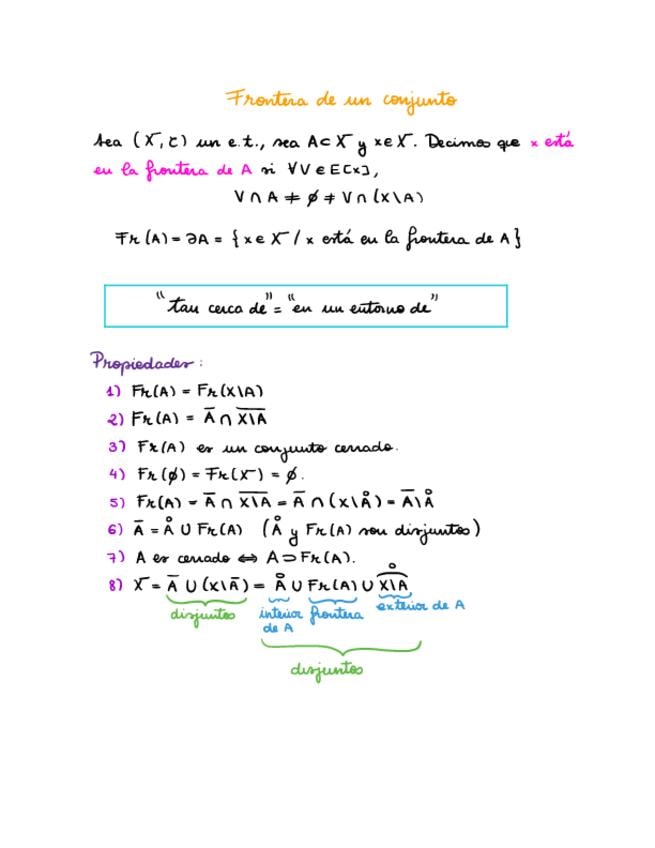 Frontera de un conjunto
Sea (X, τ) un e.t., sea A⊂X y x∈X. Decimos que x está
en la frontera de A si ∀V∈E[x],
V∩A ≠ ∅ ≠ V∩(X\A)
Fr(A) = ∂A = {x∈X / x está en la frontera de A}
"tan cerca de" = "en un entorno de"
Propiedades:
1) Fr(A) = Fr(X\A)
2) Fr(A) = A̅ ∩ X\A̅
3) Fr(A) es un conjunto cerrado.
4) Fr(∅) = Fr(X) = ∅.
5) Fr(A) = A̅ ∩ X̅\̅A̅ = A̅ ∩ (X\Å) = A̅\Å
6) A̅ = Å ∪ Fr(A) (Å y Fr(A) son disjuntos)
7) A es cerrado ⇔ A⊃Fr(A).
8) X = A̅ ∪ (X\A̅) = Å ∪ Fr(A) ∪ X\A°
disjuntos interior frontera exterior de A
de A
disjuntos